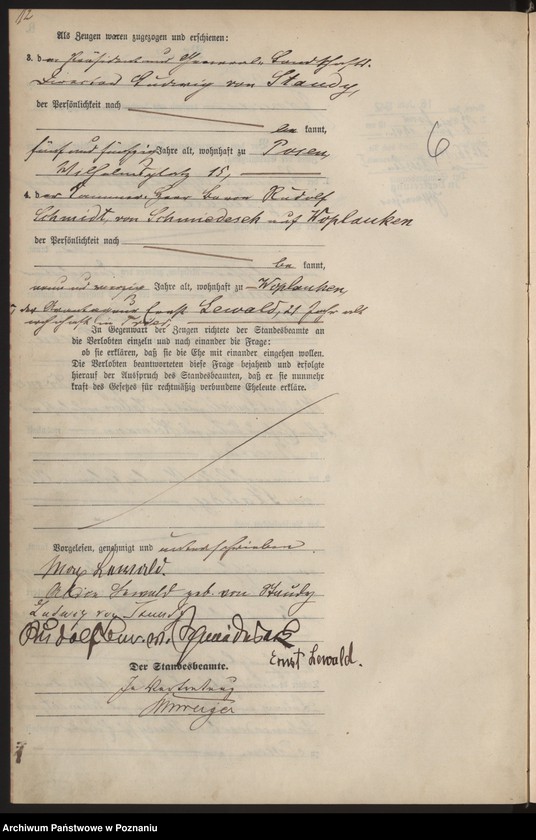 12
6
Als Zeugen waren zugezogen und erschienen:
3. der Präsident und General-Landschafts-
Director Ludwig von Staudy,
der Persönlichkeit nach
be kannt,
fünf und fünfzig Jahre alt, wohnhaft zu Posen,
Wilhelmsplatz 15,
4. der Kammerherr Baron Rudolf
Schmidt, von Schmiedeseck auf Woplauken
der Persönlichkeit nach
be kannt,
neun und vierzig Jahre alt, wohnhaft zu Woplauken
der Ernst Lewald, 21 Jahr alt
wohnhaft in
In Gegenwart der Zeugen richtete der Standesbeamte an
die Verlobten einzeln und nach einander die Frage:
ob sie erklären, daß sie die Ehe mit einander eingehen wollen.
Die Verlobten beantworteten diese Frage bejahend und erfolgte
hierauf der Ausspruch des Standesbeamten, daß er sie nunmehr
kraft des Gesetzes für rechtmäßig verbundene Eheleute erkläre.
Vorgelesen, genehmigt und unterschrieben.
Max Lewald.
Alice Lewald geb von Staudy
Ludwig von Staudy
Rudolf Schmiedeseck
Ernst Lewald.
Der Standesbeamte.
In Vertretung
Archiwum Państwowe w Poznaniu